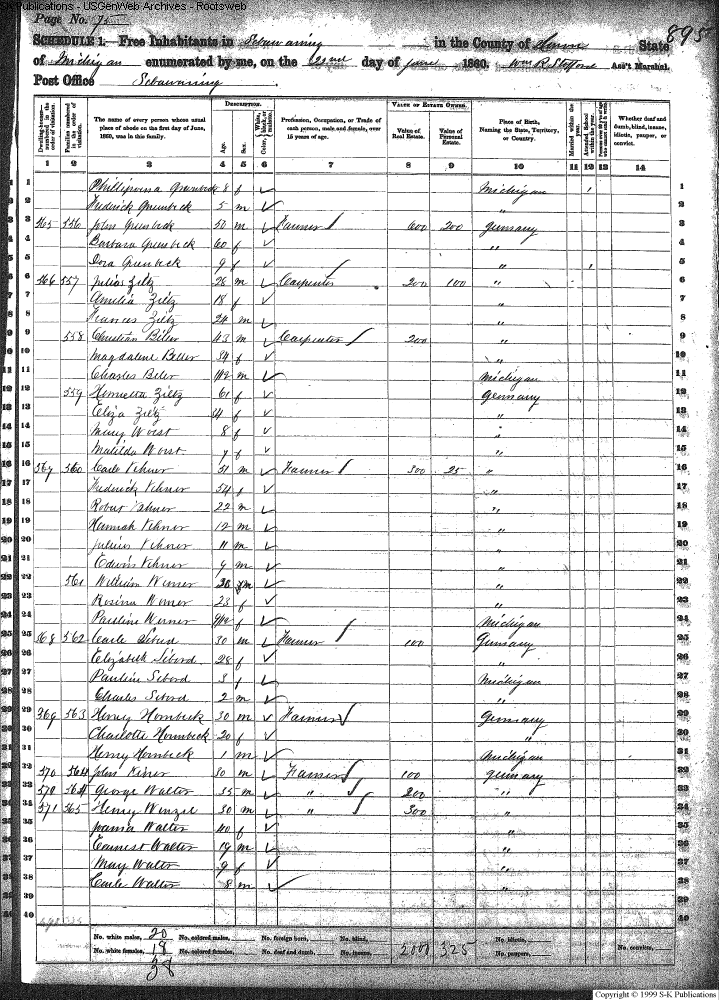 S-K Publications - USGenWeb Archives - Rootsweb
Page No. 75
895
SCHEDULE 1.—Free Inhabitants in Sebawaing in the County of Huron State
of Michigan enumerated by me, on the 22nd day of June 1860. Wm R. Stafford Ass't Marshal.
Post Office Sebawaing
Dwelling-houses—numbered in the order of visitation.
Families numbered in the order of visitation.
The name of every person whose usual place of abode on the first day of June, 1860, was in this family.
Description.
Age.
Sex.
Color, White, black, or mulatto.
Profession, Occupation, or Trade of each person, male and female, over 15 years of age.
Value of Estate Owned.
Value of Real Estate.
Value of Personal Estate.
Place of Birth, Naming the State, Territory, or Country.
Married within the year.
Attended School within the year.
Whether deaf and dumb, blind, insane, idiotic, pauper, or convict.
1 2 3 4 5 6 7 8 9 10 11 12 13 14
1 8 f Michigan 1 1
2 Frederick Grunbeck 5 m " 2
3 365 556 John Grunbeck 50 m Farmer 600 200 Germany 3
4 Barbara Grunbeck 60 f " 4
5 Dora Grunbeck 9 f " 1 5
6 366 557 Julius Ziltz 28 m Carpenter 200 100 " 6
7 Amelia Ziltz 18 f " 7
8 Frances Ziltz 24 m " 8
9 558 Christian Biller 43 m Carpenter 200 " 9
10 Magdalene Biller 34 f " 10
11 Charles Biler m Michigan 11
12 559 Henrietta Ziltz 61 f Germany 12
13 Eliza Ziltz f " 13
14 Mary Worst 8 f " 14
15 Matilda Worst f " 15
16 367 560 Carle Vehner 51 m Farmer 300 25 " 16
17 Frederick Vehner 54 f " 17
18 Robert Vehner 22 m " 18
19 Hannah Vehner 12 m " 19
20 Julius Vehner 11 m " 20
21 Edwin Vehner 9 m " 21
22 561 William Werner m " 22
23 Rosina Werner 23 f " 23
24 Pauline Werner f Michigan 24
25 368 562 Carle Sebord 30 m Farmer 100 Germany 25
26 Elizabeth Sebord 28 f " 26
27 Pauline Sebord 3 f Michigan 27
28 Charles Sebord 2 m " 28
29 369 563 Henry Hornbeck 30 m Farmer Germany 29
30 Charlotte Hornbeck 20 f " 30
31 Henry Hornbeck 1 m Michigan 31
32 370 564 John 30 m Farmer 100 Germany 32
33 George Walter 35 m " 200 " 33
34 371 565 Henry Wenzel 30 m " 300 34
35 Walter 40 f " 35
36 Earnest Walter 19 m " 36
37 May Walter 9 f " 37
38 Carle Walter 8 m " 38
39 39
40 40
No. white males, 20 No. colored males, No. foreign born, No. blind, No. idiotic,
No. white females, 19 No. colored females, No. deaf and dumb, No. insane, 2000 325 No. paupers, No. convicts,
38
Copyright © 1999 S-K Publications